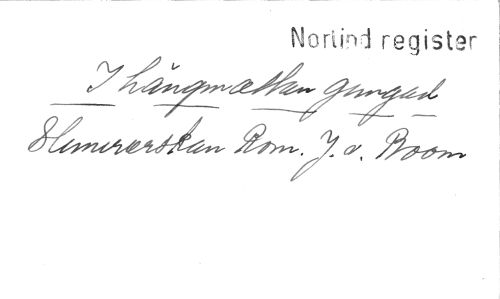 Norlind register
I hängmattan gungad
Slummrerskan Rom. J. v. Boom